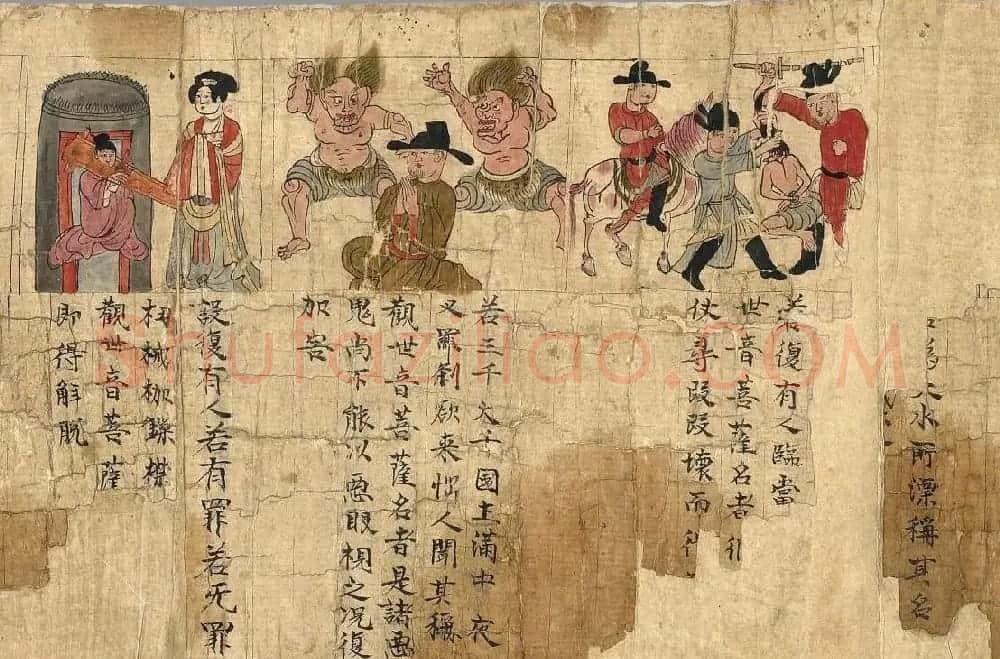 為大水所漂稱其名
若復有人臨當
世音菩薩名者
仗尋段段壞而
若三千大千國土滿中夜
叉羅剎欲來惱人聞其稱
觀世音菩薩名者是諸惡
鬼尚不能以惡眼視之況復
加害
設復有人若有罪若无罪
杻械枷鏁檢
觀世音菩薩
即得解脫
shufaziliao.COM